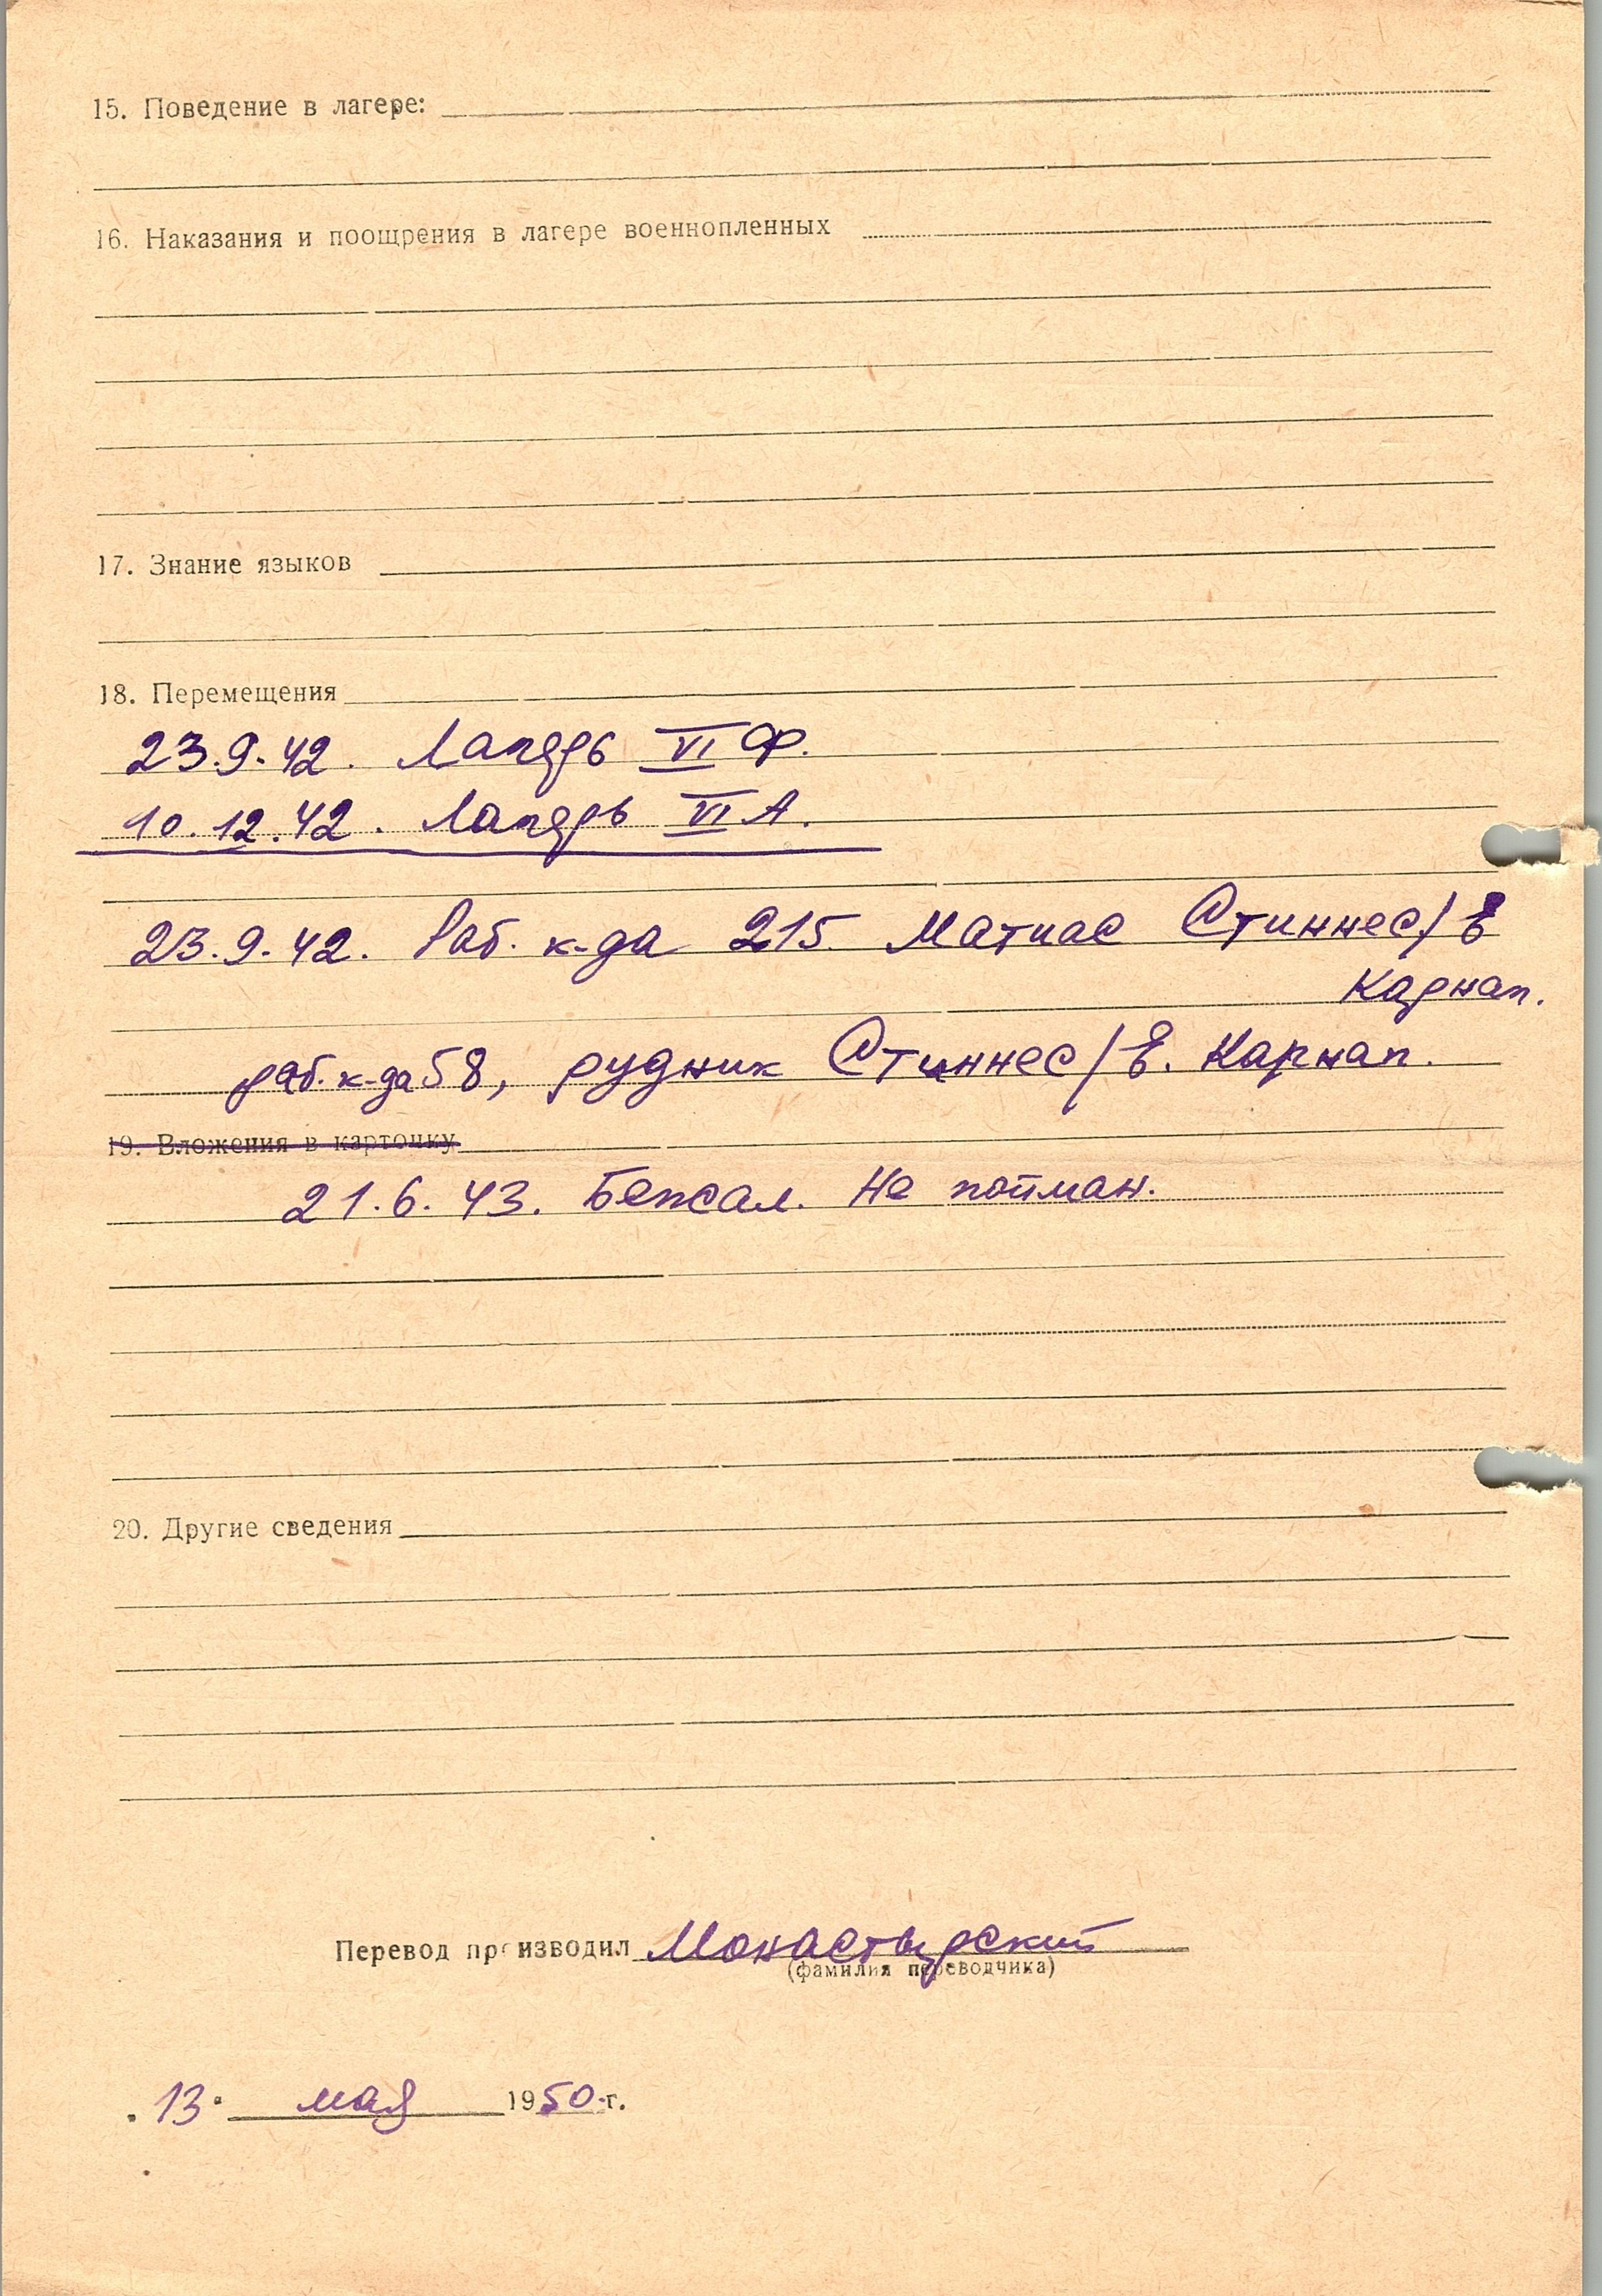 15. Поведение в лагере:
16. Наказания и поощрения в лагере военнопленных
17. Знание языков
18. Перемещения
23.9.42. Лагерь VI Ф.
10.12.42. Лагерь VI А.
23.9.42. Раб. к-да 215. Матиас Стиннес/Е
Карнап.
раб. к-да 58, рудник Стиннес/Е. Карнап.
19. Вложения в карточку
21.6.43. Бежал. Не пойман.
20. Другие сведения
Перевод производил Монастырский
(фамилия переводчика)
"13" мая 1950 г.